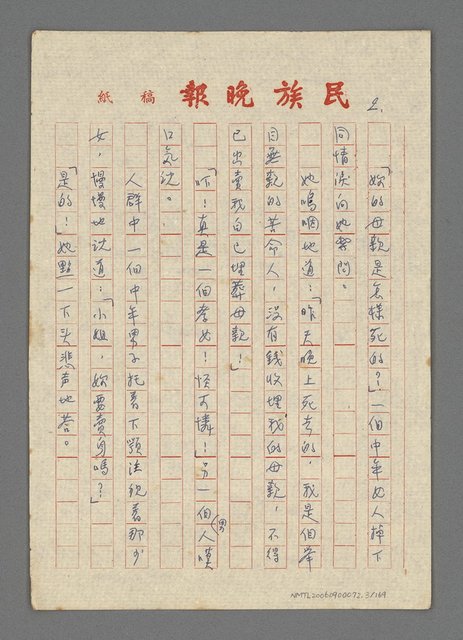 民族晚報 稿紙
2.
「妳的母親是怎樣死的？」一個中年女人掉下
同情淚向她問。
她嗚咽地道：「昨天晚上死去的，我是個舉
目無親的苦命人，沒有錢收埋我的母親，不得
已出賣我自己埋葬母親！」
「吓！真是一個孝女！怪可憐！」另一個(男)人嘆
口氣說。
人群中一個中年男子托着下顎注視着那少
女，慢慢地說道：「小姐，妳要賣身嗎？」
「是的！」她點一下头悲声地答。
NMTL20060900072.3/169